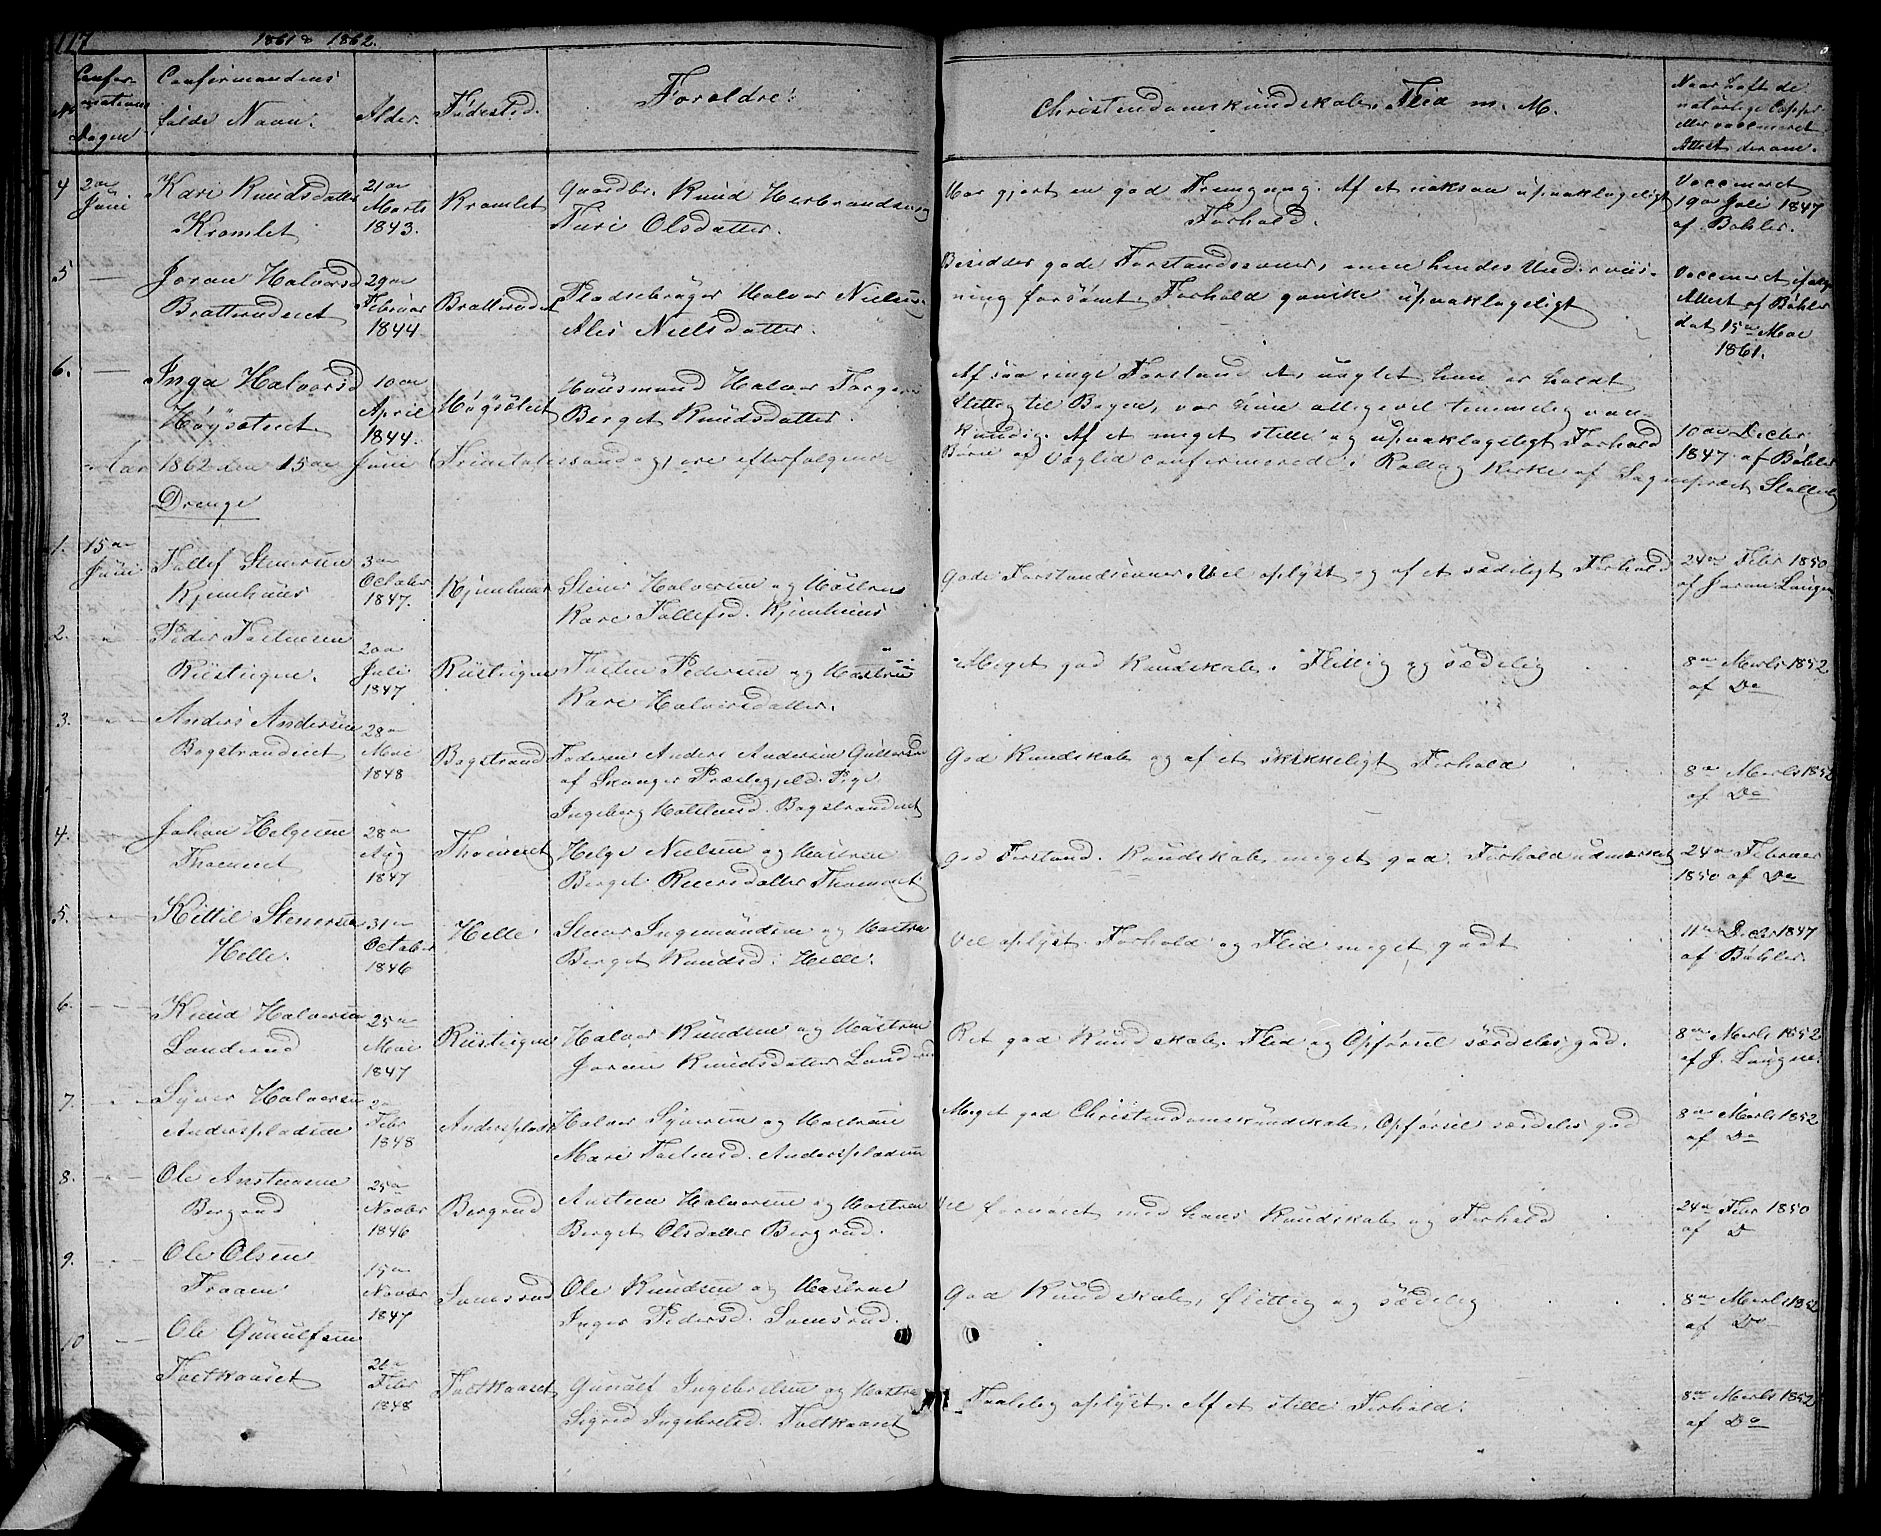 117
1861 & 1862.
No
Confirmations Dagen
Confirmandens
fulde Navn.
Alder.
Fødested.
Forældre:
Christendomskundskab, Flid m. M.
Naar hafte de
naturlige Copper
eller vaccineret
Attest derom.
4 2en Juni
Kari Knudsdatter
Kromlet
21en
Marts
1843.
Kromlet
Gaardbr. Knud Herbrandsen og
Turi Olsdatter.
Har gjort en god Fremgang. Af et voksen upaaklageligt
Forhold.
Vaccineret
19en Juli 1847
af Bøhler.
5 —
Joran Halvorsd
Bratterudeiet
29en
Februar
1844
Bratterudeiet
Pladsebruger Halvor Nielsen og
Alis Nielsdatter.
Besidder gode Forstandsevner, men hendes Underviis-
ning forsømt. Forhold ganske upaaklageligt
Vaccineret ifølge
Attest af Bøhler
dat 15en Mai
1861.
6. —
Inga Halvorsd
Høgsøteiet
10en
April
1844.
Høgsøteiet
Huusmand Halvor Torger
Berget Knudsdatter.
Af saa ringe Forstand At, uagtet hun er holdt
flittig til Bogen, var hun alligevel temmelig van-
kundig. Af et meget stille og upaaklageligt Forhold
10en Decbr
1847 af Bøhler
Aar 1862 den 15en Juni (Trinitatissøndag) ere efterfølgende
Børn af Væglid confirmerede i Rollag Kirke af Sognepræst
Drenge
1. 15en Juni
Tollef Stenersen
Kjemhuus
3en
October
1847.
Kjemhuus
Stener Halvorsen og Hustrue
Kari Tollefsd. Kjemhuus
Gode Forstandsevner. Vel oplyst og af et sædeligt Forhold
24en Febr 1850
af Joran Laugen
2. — " —
Peder Tostensen
Rusteigne.
20en
Juli
1847
Rusteigne
Tosten Pedersen og Hustrue
Kari Halvorsdatter.
Meget god Kundskab. Flittig og sædelig
8en Marts 1852
af Do
3. — " —
Anders Andersen
Bogstrandeiet
28en
Mai
1848
Bogstrand
Faderen Anders Andersen
af Præstegjeld. Pige
Ingeborg Halstensd. Bogstrandeiet
God Kundskab og af et skikkeligt Forhold
8en Marts 1852
af Do
4. — " —
Johan Helgesen
Thoeneiet
28en
Aug
1847
Thoeneiet
Helge Nielsen og Hustrue
Berget Reiersdatter Thoeneiet
God Forstand. Kundskab meget god. Forhold udmærket
24en Februar
1850 af Do
5. — " —
Kittil Stenersen
Helle.
31en
October
1846
Helle
Stener Ingemundsen og Hustrue
Berget Knudsd: Helle.
Vel oplyst. Forhold og Flid meget godt
11en Decbr 1847
af Bøhler.
6. — " —
Knud Halvorsen
Landerud
25en
Mai
1847
Rusteigne
Halvor Knudsen og Hustrue
Joran Knudsdatter Landerud
Ret god Kundskab. Flid og Opførsel særdeles god.
8en Marts 1852
af J. Laugne.
7. — " —
Syver Halvorsen
Anderspladsen
2en
Febr
1848
Andersplads
Halvor Syversen og Hustrue
Mari Tostensd. Anderspladsen
Meget god Christendomskundskab. Opførsel særdeles god
8en Marts 1852
af Do
8. — " —
Ole Anstensen
Bergrud
25en
Novbr
1846
Bergrud
Ansten Halvorsen og Hustrue
Berget Olsdatter Bergrud.
Vel fornøiet med hans Kundskab og Forhold
24en Febr 1850
af D
9. — " —
Ole Olsen
Traaen
15en
Novbr
1847
Somsrud
Ole Knudsen og Hustrue
Inger Pedersd. Somsrud.
God Kundskab, flittig og sædelig
8en Marts 1852
af Do
10 — " —
Ole Gunulfsen
Toetkaaset
26en
Febr
1848
Toetkaaset
Gunulf Ingebretsen og Hustrue
Sigrid Ingebretsd. Toetkaaset
Taalelig oplyst. Af et stille Forhold.
8en Marts 1852
af Do